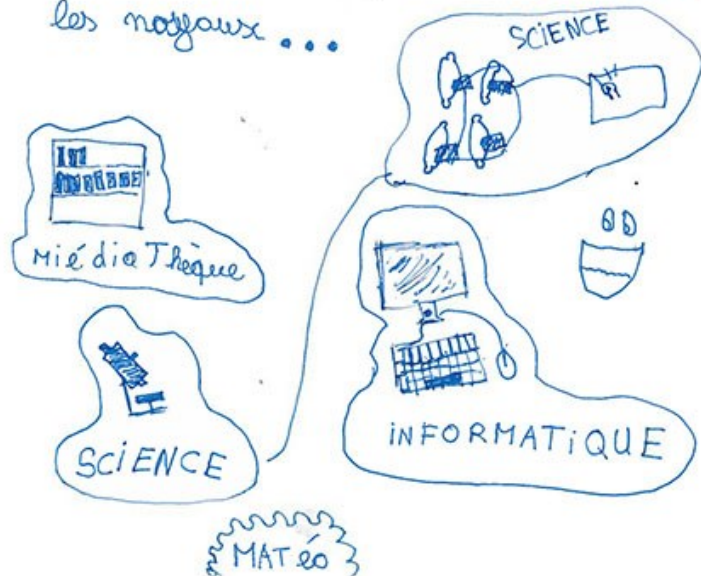 les noyaux ...
SCIENCE
MiédiaThèque
SCIENCE
INFORMATIQUE
MATéo